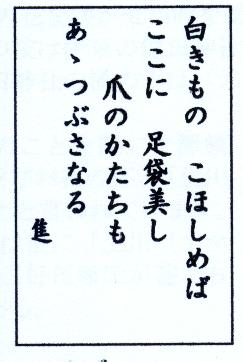 白きもの　こほしめば
ここに　足袋美し
爪のかたちも
あゝつぶさなる
隻